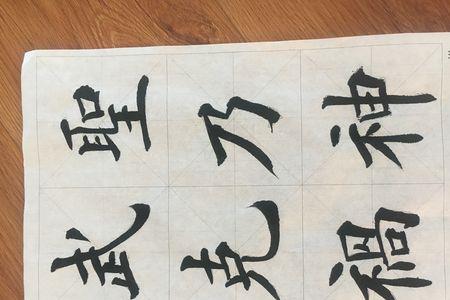 聖乃神
武克禍